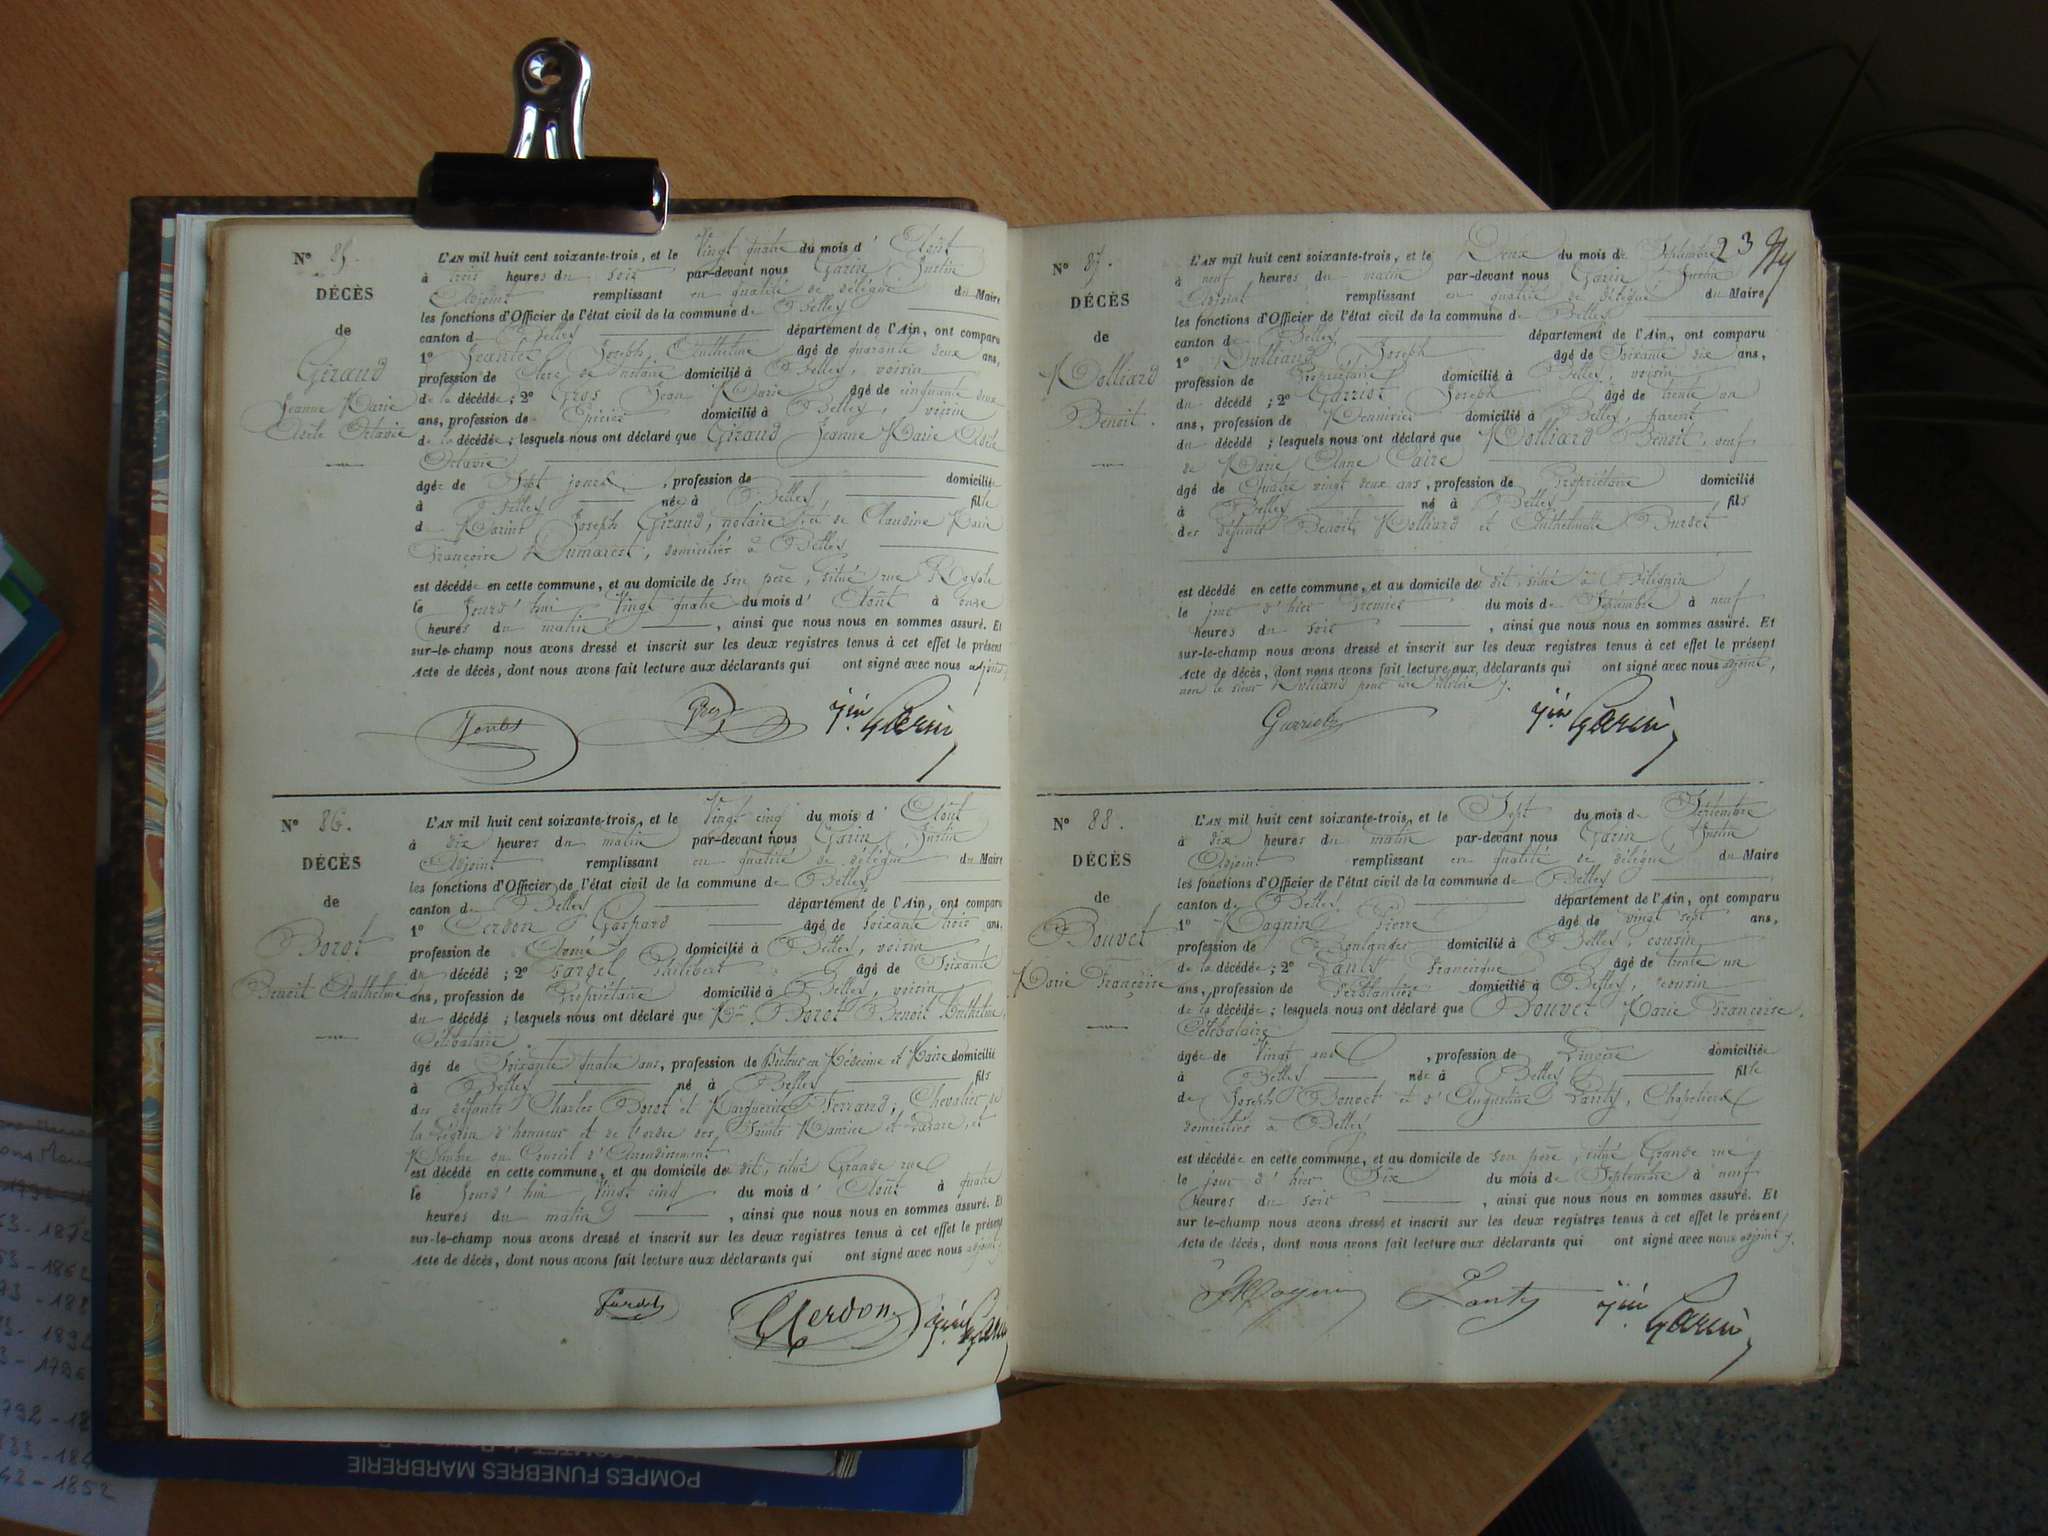 N° 85.
DÉCÈS
de
Giraud
Jeanne Marie
Adèle Octavie
L'AN mil huit cent soixante-trois, et le Vingt quatre du mois d' Août
à trois heures du soir par-devant nous Garin Justin
Adjoint remplissant en qualité de délégué du Maire
les fonctions d'Officier de l'état civil de la commune de Belley
canton de Belley département de l'Ain, ont comparu
1° Joseph Anthelme âgé de quarante deux ans,
profession de Clerc de notaire domicilié à Belley, voisin
de la décédée ; 2° Gros Jean Marie âgé de cinquante deux
ans, profession de Epicier domicilié à Belley, voisin
de la décédée ; lesquels nous ont déclaré que Giraud Jeanne Marie Adèle
Octavie
âgée de Sept jours, profession de domiciliée
à Belley née à Belley, fille
de Marius Joseph Giraud, notaire et de Claudine Marie
Françoise Dumarest, domiciliés à Belley
est décédée en cette commune, et au domicile de son père, situé rue Royale
le Jourd'hui Vingt quatre du mois d' Août à onze
heures du matin, ainsi que nous nous en sommes assuré. Et
sur-le-champ nous avons dressé et inscrit sur les deux registres tenus à cet effet le présent
Acte de décès, dont nous avons fait lecture aux déclarants qui ont signé avec nous adjoint
Gros jin Garin
N° 86.
DÉCÈS
de
Borot
Benoît Anthelme
L'AN mil huit cent soixante-trois, et le Vingt cinq du mois d' Août
à dix heures du matin par-devant nous Garin, Justin
Adjoint remplissant en qualité de délégué du Maire
les fonctions d'Officier de l'état civil de la commune de Belley
canton de Belley département de l'Ain, ont comparu
1° Cerdon Gaspard âgé de soixante trois ans,
profession de domicilié à Belley, voisin
du décédé ; 2° Tardel Philibert âgé de Soixante
ans, profession de Propriétaire domicilié à Belley, voisin
du décédé ; lesquels nous ont déclaré que Mr Borot Benoît Anthelme,
Célibataire
âgé de Soixante quatre ans, profession de Docteur en Médecine et Maire domicilié
à Belley né à Belley fils
des défunts Charles Borot et Marguerite Ferrand; Chevalier de
la Légion d'honneur et de l'ordre des Saints Maurice et Lazare, et
Membre du Conseil d'Arrondissement
est décédé en cette commune, et au domicile de dit, situé Grande rue
le Jourd'hui Vingt cinq du mois d' Août à quatre
heures du matin, ainsi que nous nous en sommes assuré. Et
sur-le-champ nous avons dressé et inscrit sur les deux registres tenus à cet effet le présent
Acte de décès, dont nous avons fait lecture aux déclarants qui ont signé avec nous adjoint
Cerdon jin Garin
23
N° 87.
DÉCÈS
de
Molliard
Benoit.
L'AN mil huit cent soixante-trois, et le Deux du mois de Septembre
à neuf heures du matin par-devant nous Garin Justin
Adjoint remplissant en qualité de délégué du Maire
les fonctions d'Officier de l'état civil de la commune de Belley
canton de Belley département de l'Ain, ont comparu
1° Dulliand, Joseph âgé de Soixante dix ans,
profession de Propriétaire domicilié à Belley, voisin
du décédé ; 2° Garriot Joseph âgé de trente un
ans, profession de Menuisier domicilié à Belley, parent
du décédé ; lesquels nous ont déclaré que Molliard Benoit, veuf
de Marie Anne Caire
âgé de Quatre vingt deux ans, profession de Propriétaire domicilié
à Belley né à Belley fils
des défunts Benoit Molliard et Anthelmette Burdet
est décédé en cette commune, et au domicile de dit, situé à Billignin
le jour d'hier Premier du mois de Septembre à neuf
heures du soir, ainsi que nous nous en sommes assuré. Et
sur-le-champ nous avons dressé et inscrit sur les deux registres tenus à cet effet le présent
Acte de décès, dont nous avons fait lecture aux déclarants qui ont signé avec nous adjoint,
non le sieur Dulliand pour
Garriot jin Garin
N° 88.
DÉCÈS
de
Bouvet
Marie Françoise
L'AN mil huit cent soixante-trois, et le Sept du mois de Septembre
à dix heures du matin par-devant nous Garin, Justin
Adjoint remplissant en qualité de délégué du Maire
les fonctions d'Officier de l'état civil de la commune de Belley
canton de Belley département de l'Ain, ont comparu
1° Magnin Pierre âgé de vingt sept ans,
profession de Boulanger domicilié à Belley, cousin
de la décédée ; 2° Lanty Francisque âgé de trente un
ans, profession de Ferblantier domicilié à Belley, cousin
de la décédée ; lesquels nous ont déclaré que Bouvet Marie Françoise,
Célibataire
âgée de Vingt ans, profession de Lingère domiciliée
à Belley née à Belley fille
de Joseph Bouvet et d'Augustine Lanty, Chapeliers
domiciliés à Belley
est décédée en cette commune, et au domicile de son père, situé Grande rue,
le jour d'hier Six du mois de Septembre à neuf
heures du soir, ainsi que nous nous en sommes assuré. Et
sur le-champ nous avons dressé et inscrit sur les deux registres tenus à cet effet le présent
Acte de décès, dont nous avons fait lecture aux déclarants qui ont signé avec nous adjoint
Magnin Lanty jin Garin
POMPES FUNEBRES MARBRERIE